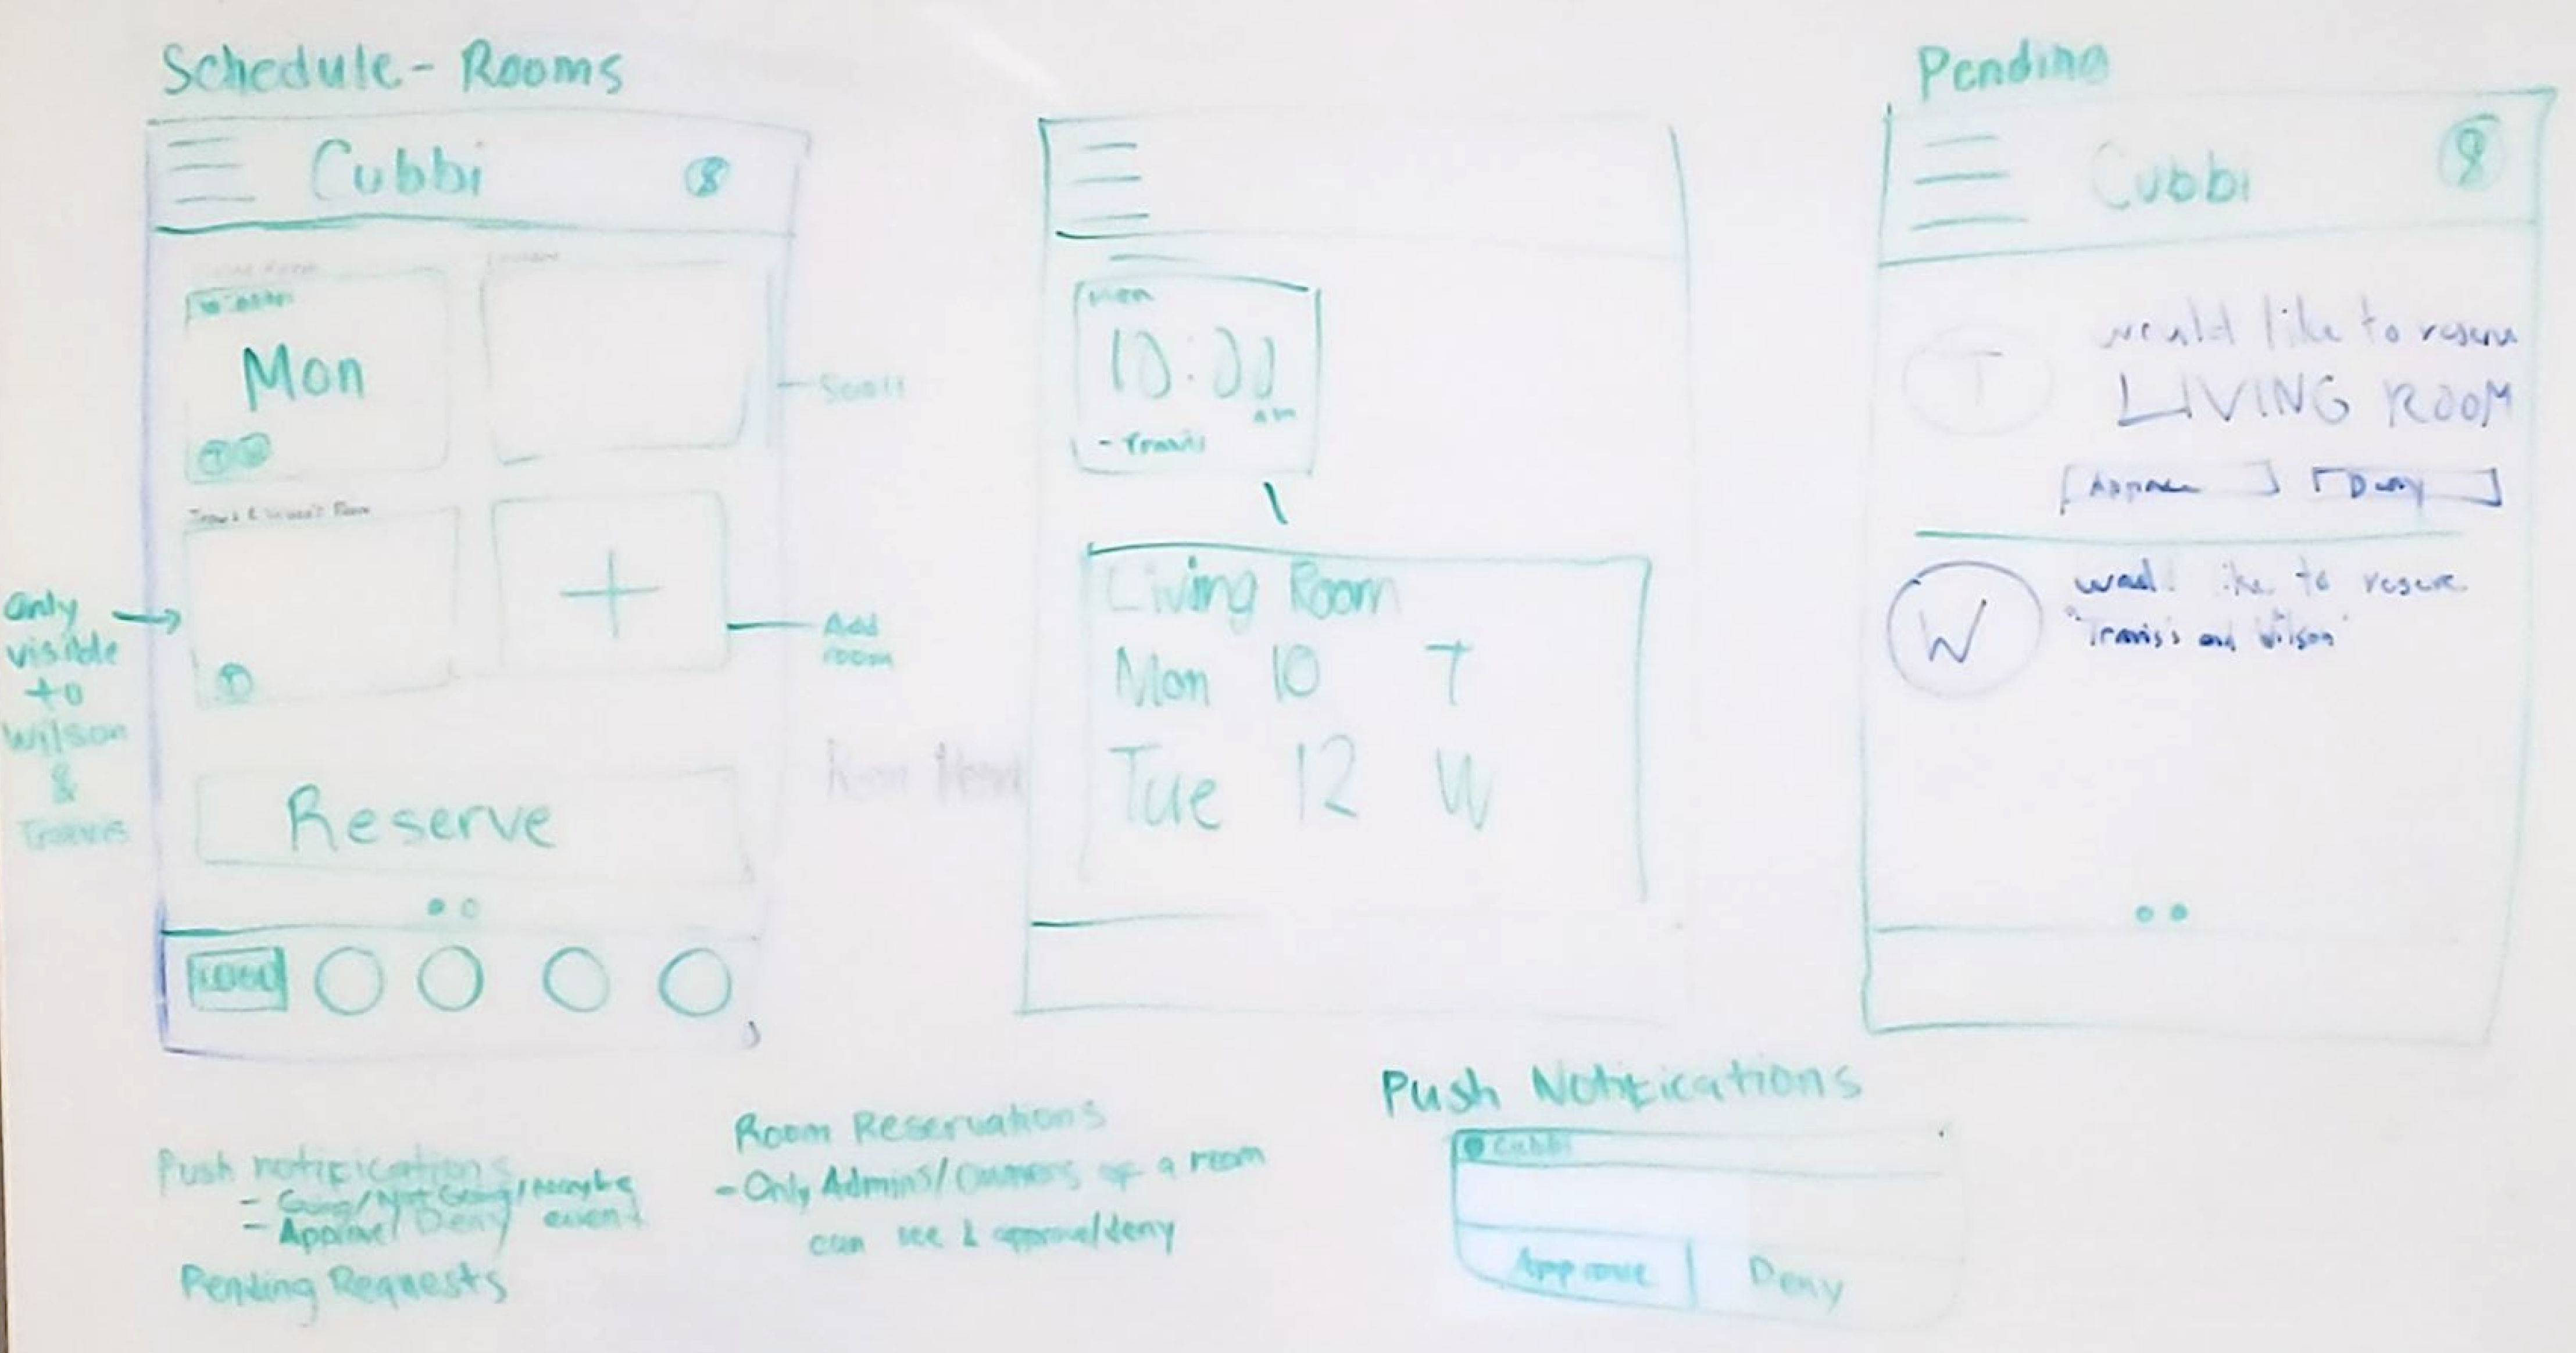 Schedule - Rooms
Cubbi
Mon
T
Scroll
Only
visible
to
Wilson
&
Travis
T
Add
room
Reserve
LOGO
Mon
10:00
am
- Travis
Living Room
Mon 10 T
Tue 12 W
Pending
Cubbi
T
would like to reserve
LIVING ROOM
Approve
Deny
W
would like to reserve
"Travis's and Wilson"
Push notifications
- Going/Not Going/Maybe
- Approve/Deny event
Pending Requests
Room Reservations
- Only Admins/Owners of a room
can see & approve/deny
Push Notifications
Cubbi
Approve
Deny